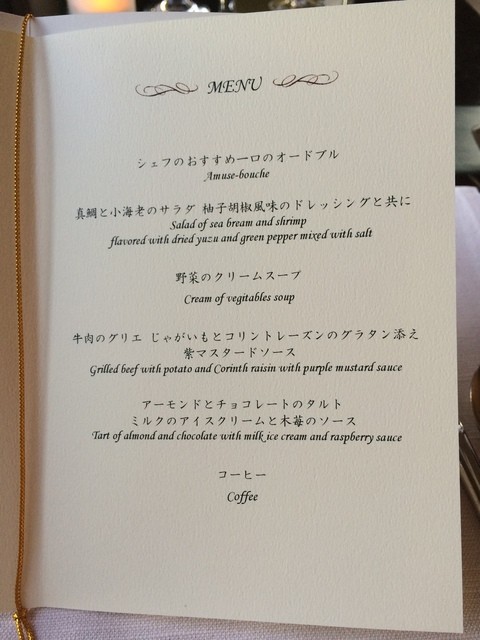 MENU
シェフのおすすめ一口のオードブル
Amuse-bouche
真鯛と小海老のサラダ 柚子胡椒風味のドレッシングと共に
Salad of sea bream and shrimp
flavored with dried yuzu and green pepper mixed with salt
野菜のクリームスープ
Cream of vegitables soup
牛肉のグリエ じゃがいもとコリントレーズンのグラタン添え
紫マスタードソース
Grilled beef with potato and Corinth raisin with purple mustard sauce
アーモンドとチョコレートのタルト
ミルクのアイスクリームと木苺のソース
Tart of almond and chocolate with milk ice cream and raspberry sauce
コーヒー
Coffee